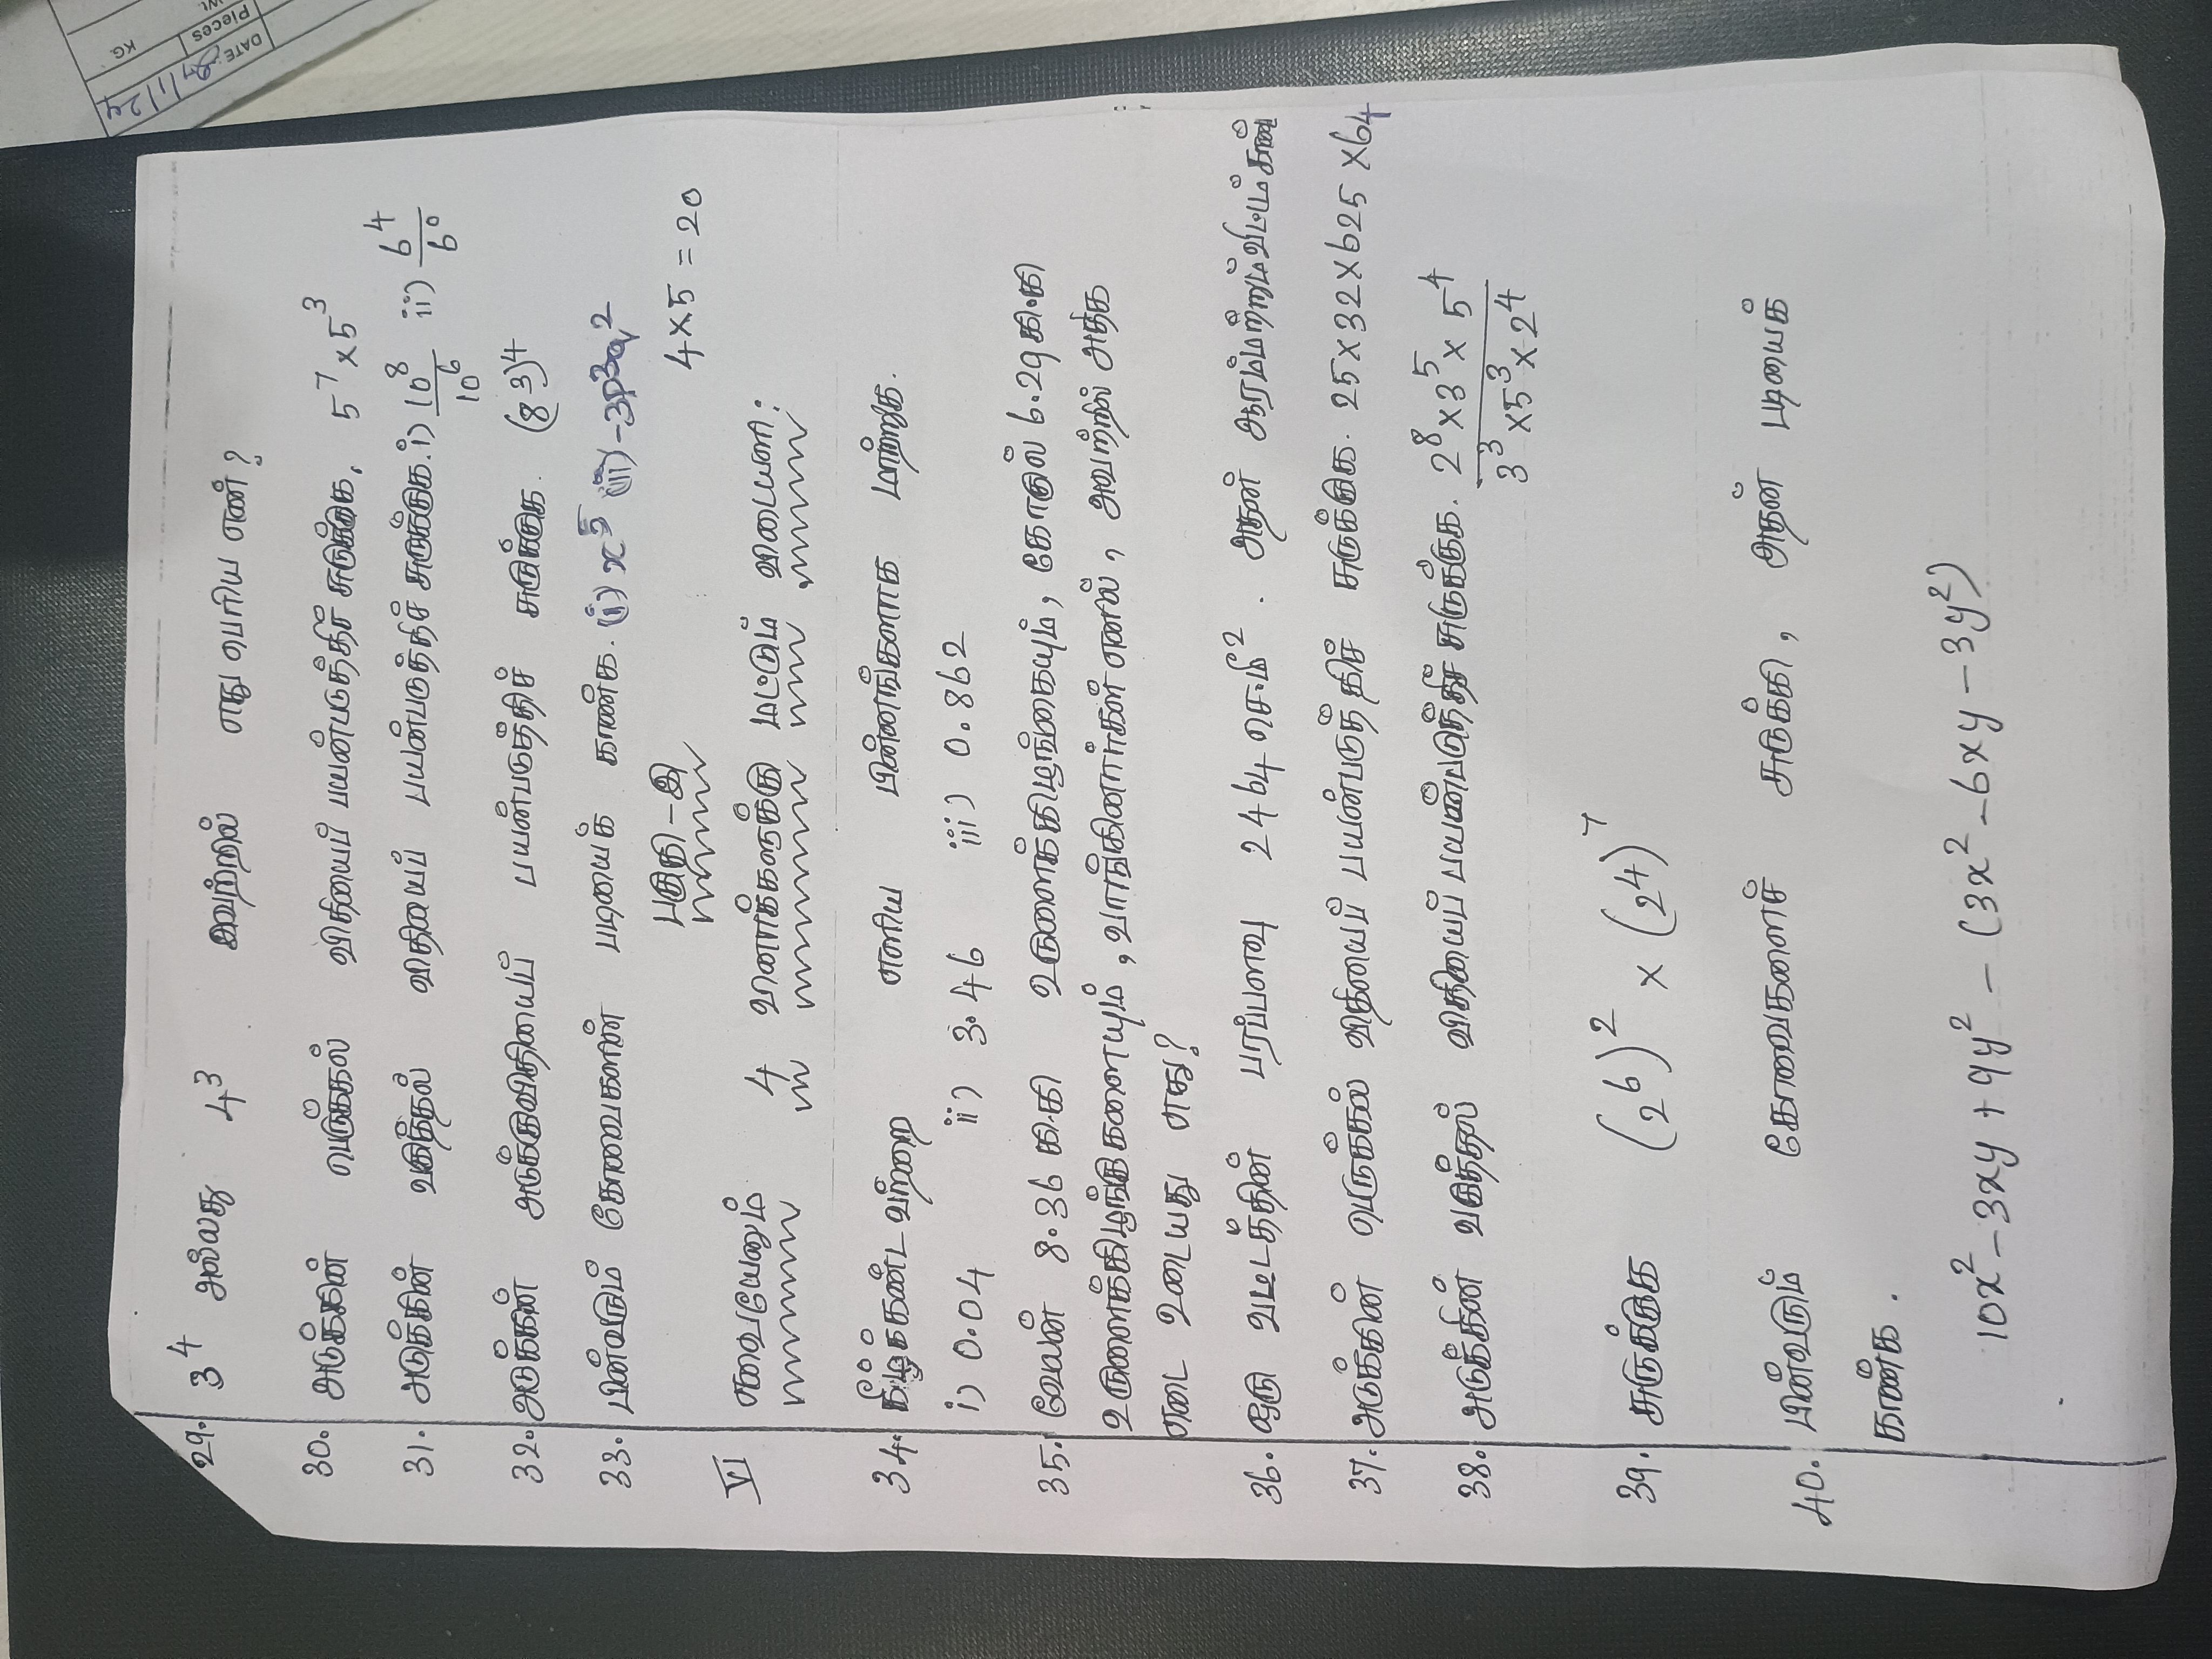 29. 3⁴ அல்லது 4³ இவற்றில் எது பெரிய எண்?
30. அடுக்கின் பெருக்கல் விதியைப் பயன்படுத்திச் சுருக்குக. 5⁷ × 5³
31. அடுக்கின் வகுத்தல் விதியைப் பயன்படுத்திச் சுருக்குக. i) 10⁸/10⁶ ii) 6⁴/6⁰
32. அடுக்கின் அடுக்குவிதியைப் பயன்படுத்திச் சுருக்குக. (8³)⁴
33. பின்வரும் கோவைகளின் படியைக் காண்க. (i) x⁵ (ii) -3p³q²
பகுதி - இ 4×5=20
VI எவையேனும் 4 வினாக்களுக்கு மட்டும் விடையளி:
34. கீழ்க்கண்டவற்றை எளிய பின்னங்களாக மாற்றுக.
i) 0.04 ii) 3.46 iii) 0.862
35. வேலன் 8.36 கி.கி உருளைக்கிழங்கையும், கோகுல் 6.29 கி.கி
உருளைக்கிழங்குகளையும், வாங்கினார்கள் எனில், அவற்றில் அதிக
எடை உடையது எது?
36. ஒரு வட்டத்தின் பரப்பளவு 2464 செ.மீ². அதன் ஆரம்மற்றும்விட்டம்காண்
37. அடுக்கின் பெருக்கல் விதியைப் பயன்படுத்திச் சுருக்குக. 25×32×625×64
38. அடுக்கின் வகுத்தல் விதியைப் பயன்படுத்திச் சுருக்குக. 2⁸×3⁵×5⁴/3³×5³×2⁴
39. சுருக்குக (2⁶)² × (2⁴)⁷
40. பின்வரும் கோவைகளைச் சுருக்கி, அதன் படியைக்
காண்க.
10x²-3xy+9y²-(3x²-6xy-3y²)
DATE:
Pieces
KG